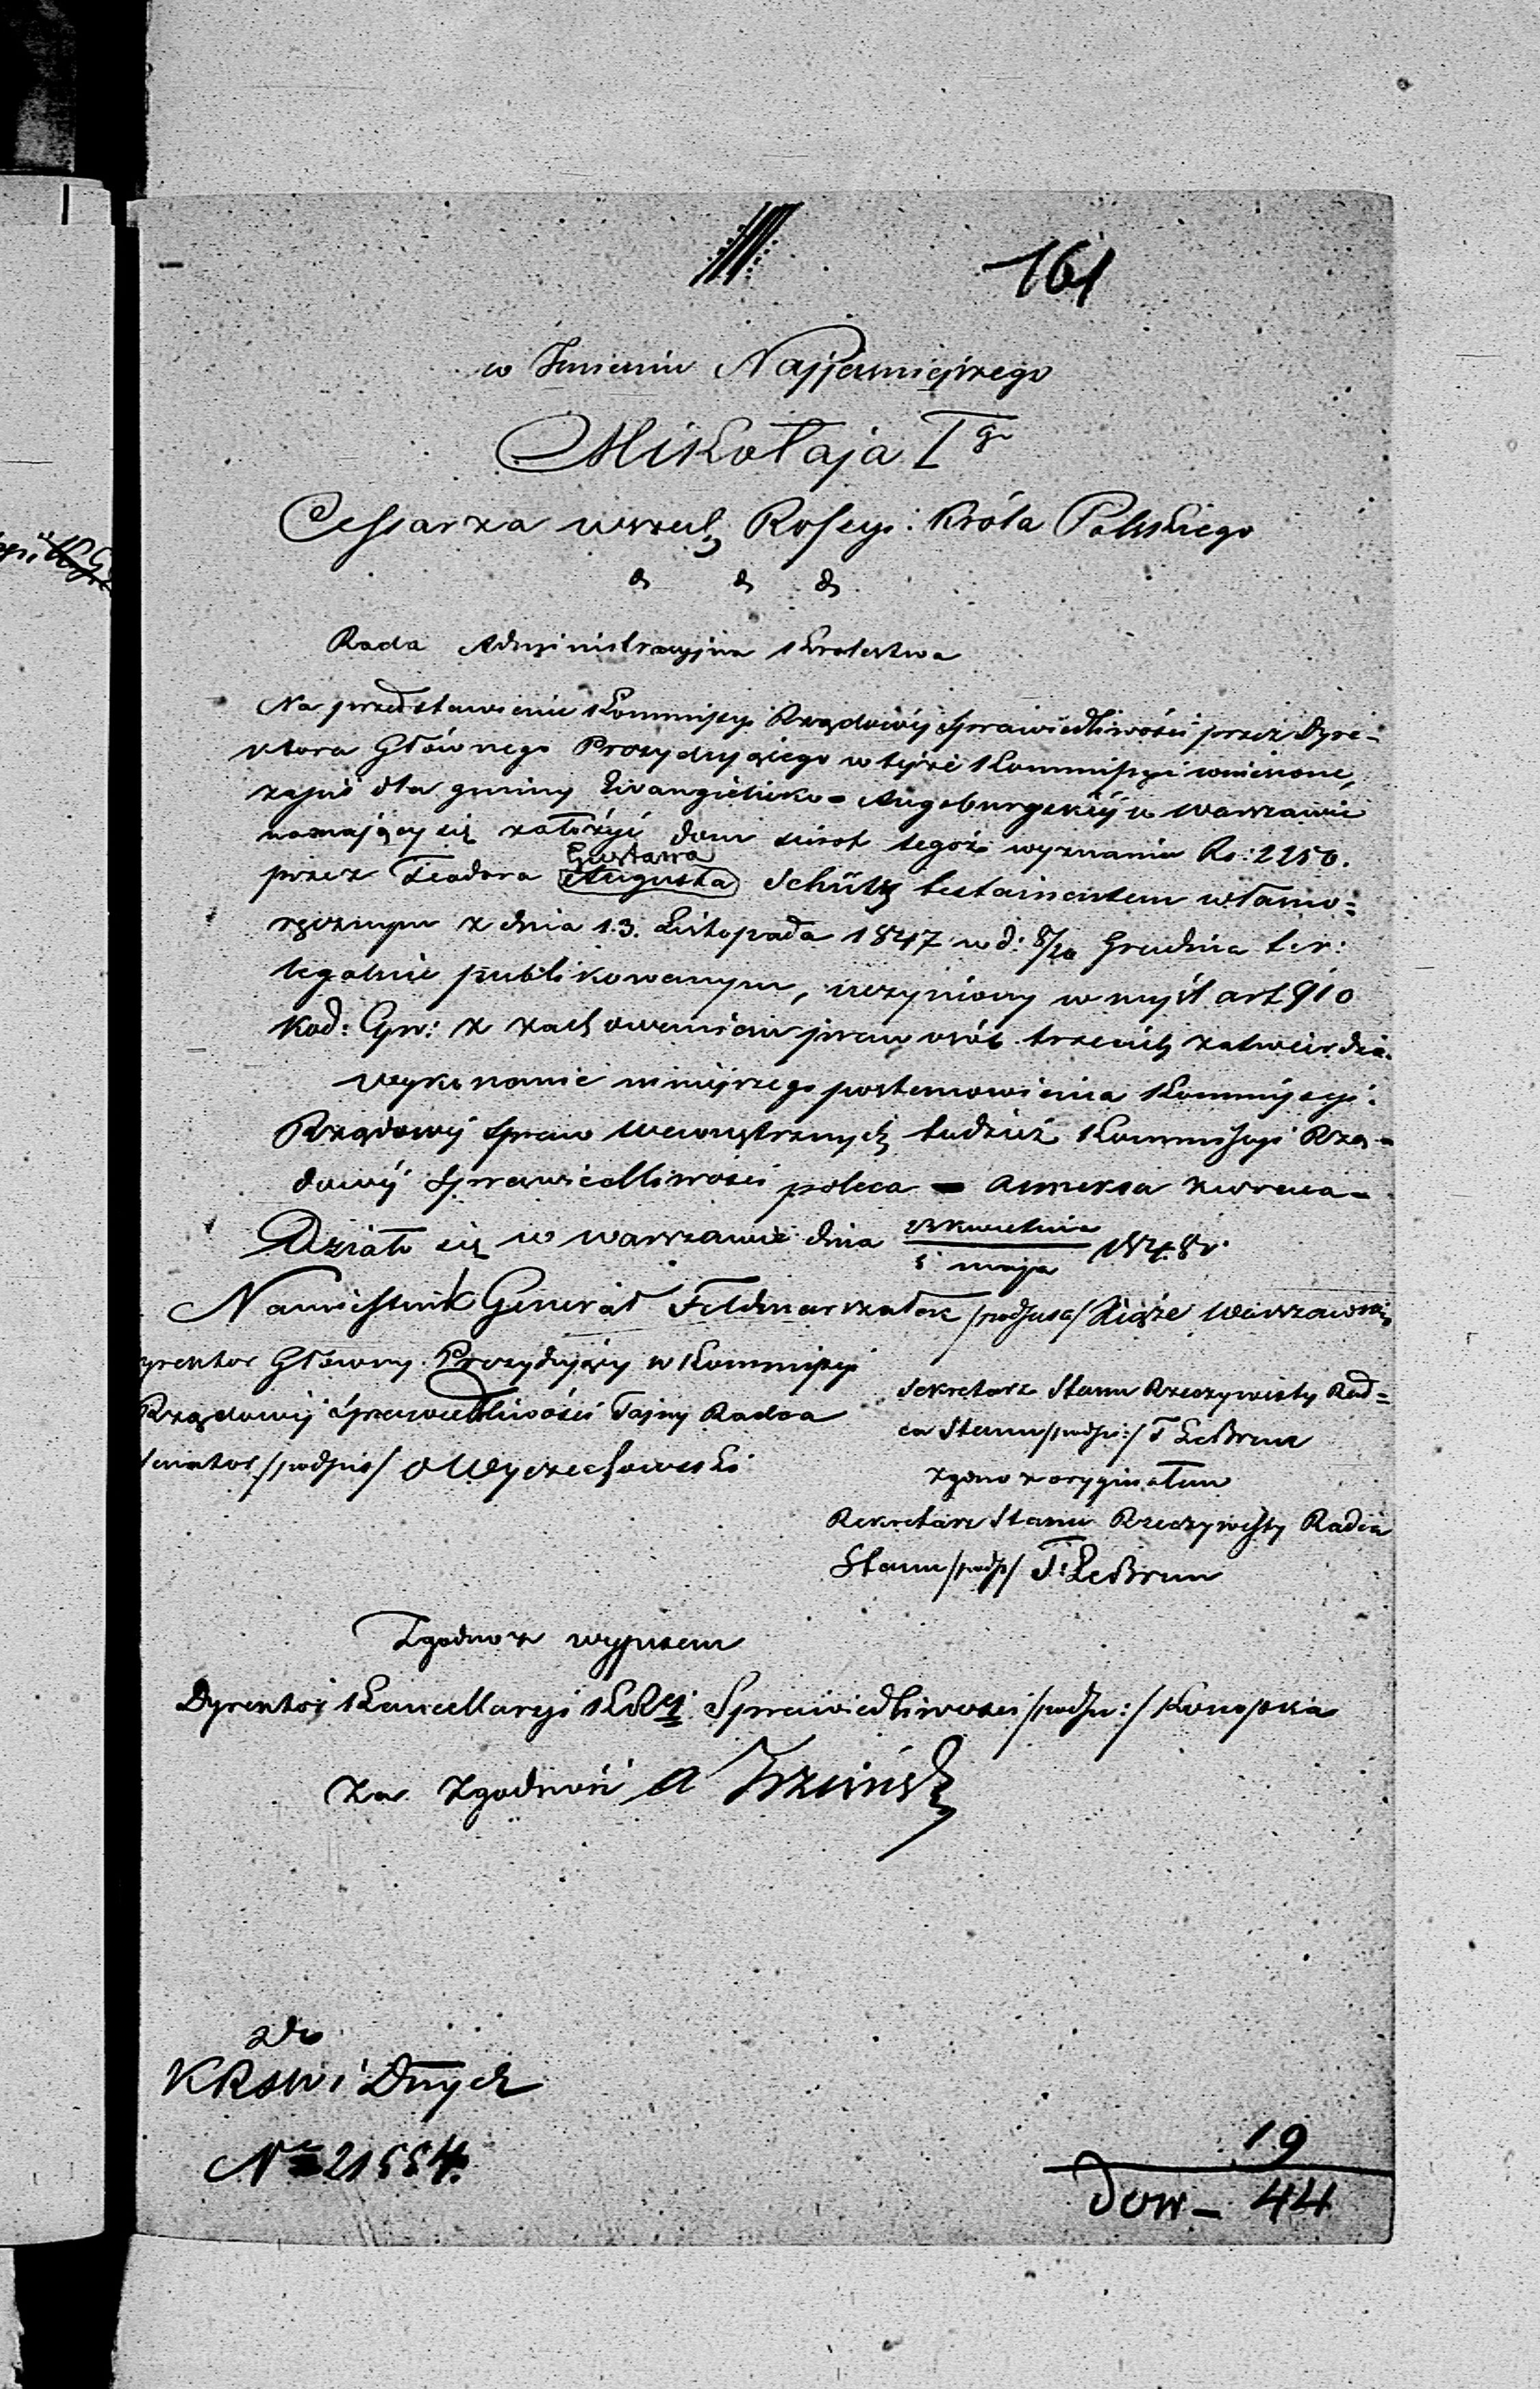 161
w Imieniu Najjaśniejszego
Mikołaja I go
Cessarza wszech Rossyi: Króla Polskiego
& & &
Rada Administracyjna Królestwa
Na przedstawienie Kommissyi Rządowéy Sprawiedliwości przez Dyre-
ktora Głównego Prezydującego w tejże Kommissyi wniesione,
zapis dla gminy Ewangielicko-Augsburgskiéj w Warszawie
mającéj się założyć dom sierot tegoż wyznania Rs: 2250.
Gustawa
przez Teodora Augusta Schütz testamentem własno=
ręcznym z dnia 13. Listopada 1847 w d: 8/20 Grudnia t. r:
legalnie publikowanym, uczyniony w myśl art 910
Kod: Cyw: z zachowaniem praw osób trzecich zatwierdza.
Wykonanie niniejszego postanowienia Kommissyi
Rządowéj Spraw Wewnętrznych tudzież Kommissyi Rzą-
dowéj Sprawiedliwości poleca - annexa zwraca-
Działo się w Warszawie dnia Kwietnia
maja 1848 r
Namiestnik Generał Feldmarszałek /podpisał/ Xiąże Warszawski
yrektor Główny Prezydujący w Kommissyi
Rządowéj Sprawiedliwości Tajny Radca
Senator /podpis/ O Wyczechowski
Sekretarz Stanu Rzeczywisty Rad=
ca Stanu /podpis:/ T LeBrun
zgodno z oryginałem
Sekretarz Stanu Rzeczywisty Radca
Stanu /podp/ T: LeBrun
Zgodno z wypisem
Dyrektor Kancellaryi KR Sprawiedliwości /podpis:/ Konopka
Za Zgodność
Do
KRSW i Dnych
No 21554.
19
Dow - 44